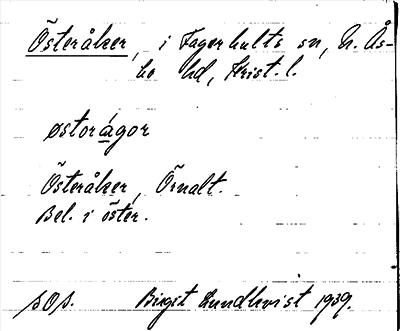 Österåker, i Fagerhults sn, N. Ås-
bo hd, Krist. l.
østorágor
Österåker, Örnalt.
Bel. i öster.
sOs. Birgit Lundkvist 1939.